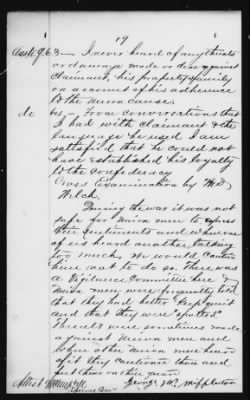 19
63 — I never heard of any threats
or damage made or done against
Claimant, his property or family
on account of his adherence
to the union cause.
do 65 — From conversations that
I had with Claimant & the
language he used I am
satisfied that he could not
have established his loyalty
to the confederacy
Cross Examination by Mr
Welch.
During the war it was not
safe for union men to express
their sentiments and when one
of us heard another talking
too much, we would caution
him not to do so. There was
a Vigilance Committee here &
union men were frequently told
that they had better keep quiet
and that they were "spotted"
Threats were sometimes made
against union men and
when other union men heard
of it they cautioned them and
put them on their guard
Attest
George W. Middleton